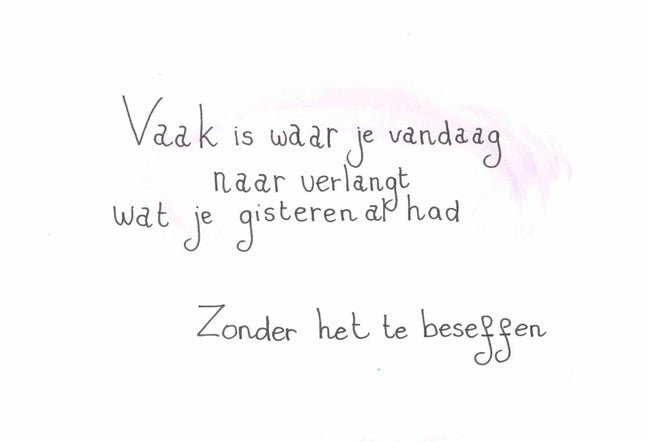 Vaak is waar je vandaag
naar verlangt
wat je gisteren al had
Zonder het te beseffen